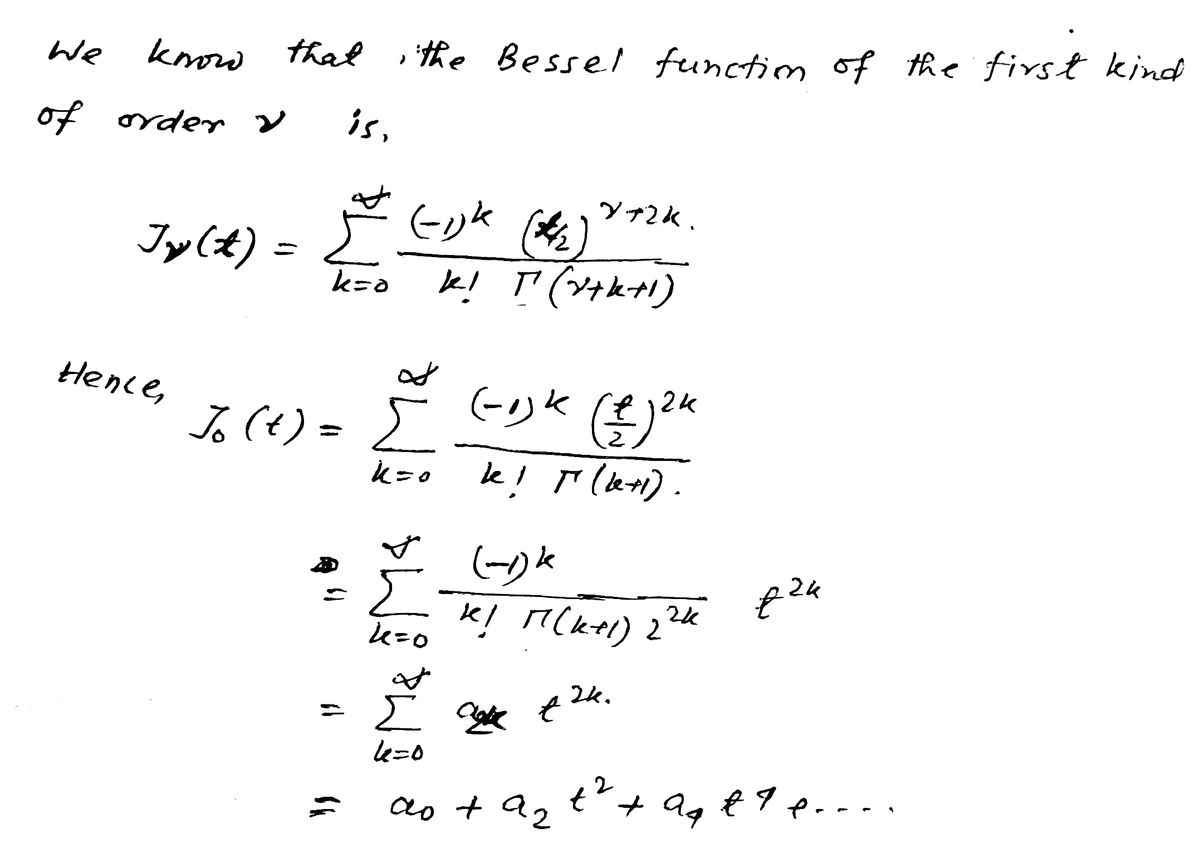 We know that, the Bessel function of the first kind
of order ν is,
J_ν(t) = ∑_{k=0}^{∞} \frac{(-1)^k (t/2)^{ν+2k}}{k! Γ(ν+k+1)}.
Hence,
J_0(t) = ∑_{k=0}^{∞} \frac{(-1)^k (\frac{t}{2})^{2k}}{k! Γ(k+1)}.
= ∑_{k=0}^{∞} \frac{(-1)^k}{k! Γ(k+1) 2^{2k}} t^{2k}
= ∑_{k=0}^{∞} a_{2k} t^{2k}.
= a_0 + a_2 t^2 + a_4 t^4 + ....